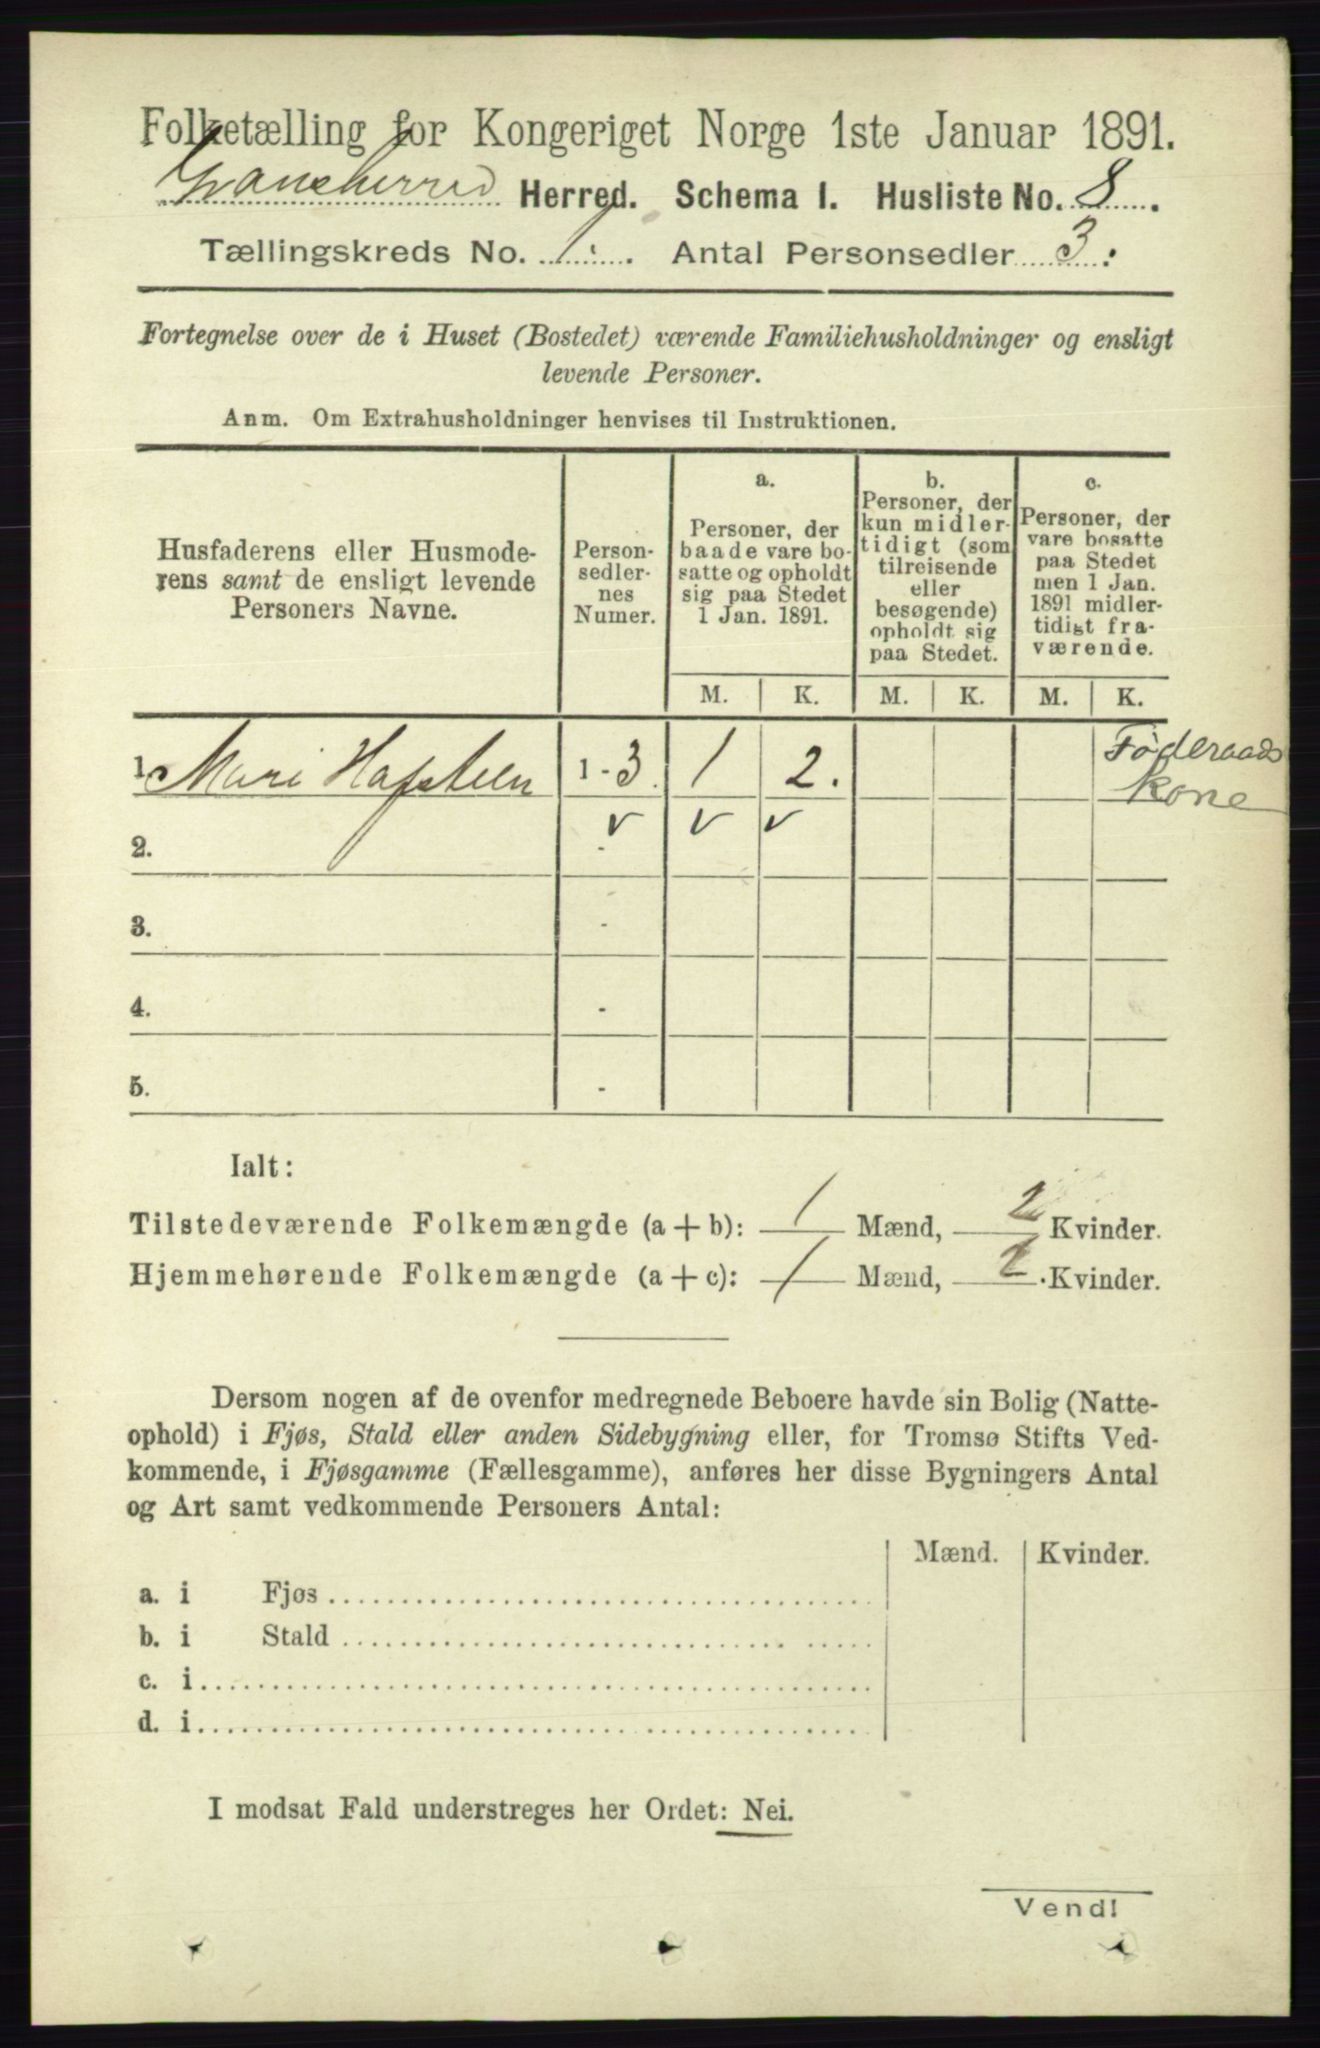 Folketælling for Kongeriget Norge 1ste Januar 1891.
Gransherred Herred. Schema I. Husliste No. 8.
Tællingskreds No. 1. Antal Personsedler 3.
Fortegnelse over de i Huset (Bostedet) værende Familiehusholdninger og ensligt
levende Personer.
Anm. Om Extrahusholdninger henvises til Instruktionen.
Husfaderens eller Husmode-
rens samt de ensligt levende
Personers Navne.
Person-
sedler-
nes
Numer.
a.
Personer, der
baade vare bo-
satte og opholdt
sig paa Stedet
1 Jan. 1891.
b.
Personer, der
kun midler-
tidigt (som
tilreisende
eller
besøgende)
opholdt sig
paa Stedet.
c.
Personer, der
vare bosatte
paa Stedet
men 1 Jan.
1891 midler-
tidigt fra-
værende.
M. K. M. K. M. K.
1. Mari Hafsteen 1-3 1 2. Föderaads
Kone
2. v v v
3. -
4. -
5. -
Ialt:
Tilstedeværende Folkemængde (a + b): 1 Mænd, 2 Kvinder.
Hjemmehørende Folkemængde (a + c): 1 Mænd, 2. Kvinder.
Dersom nogen af de ovenfor medregnede Beboere havde sin Bolig (Natte-
ophold) i Fjøs, Stald eller anden Sidebygning eller, for Tromsø Stifts Ved-
kommende, i Fjøsgamme (Fællesgamme), anføres her disse Bygningers Antal
og Art samt vedkommende Personers Antal:
Mænd. Kvinder.
a. i Fjøs
b. i Stald
c. i
d. i
I modsat Fald understreges her Ordet: Nei.
Vend!